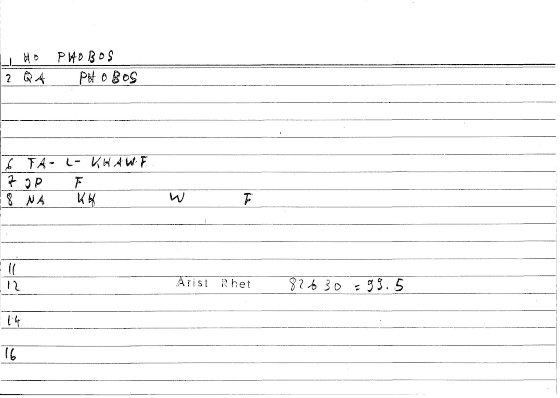 1 HO PHOBOS
2 QA PHOBOS
6 FA-L-KHAWF
7 JP F
8 NA KH W F
11
12 Arist Rhet 82630 = 99.5
14
16